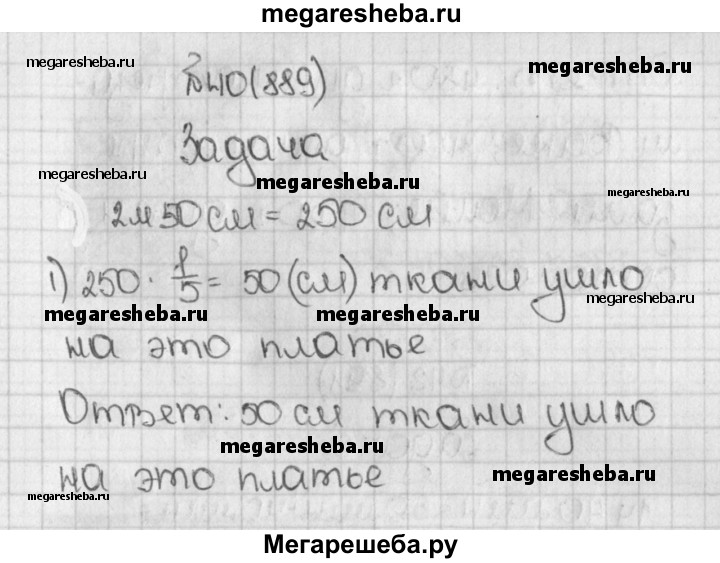 megaresheba.ru
megaresheba.ru
megaresheba.ru
№ 410(889)
Задача
megaresheba.ru
megaresheba.ru
megaresheba.ru
2м 50 см = 250 см
1) 250 · 1/5 = 50 (см) ткани ушло
megaresheba.ru
megaresheba.ru
megaresheba.ru
на это платье
Ответ: 50 см ткани ушло
megaresheba.ru
megaresheba.ru
на это платье
megaresheba.ru
Мегарешеба.ру